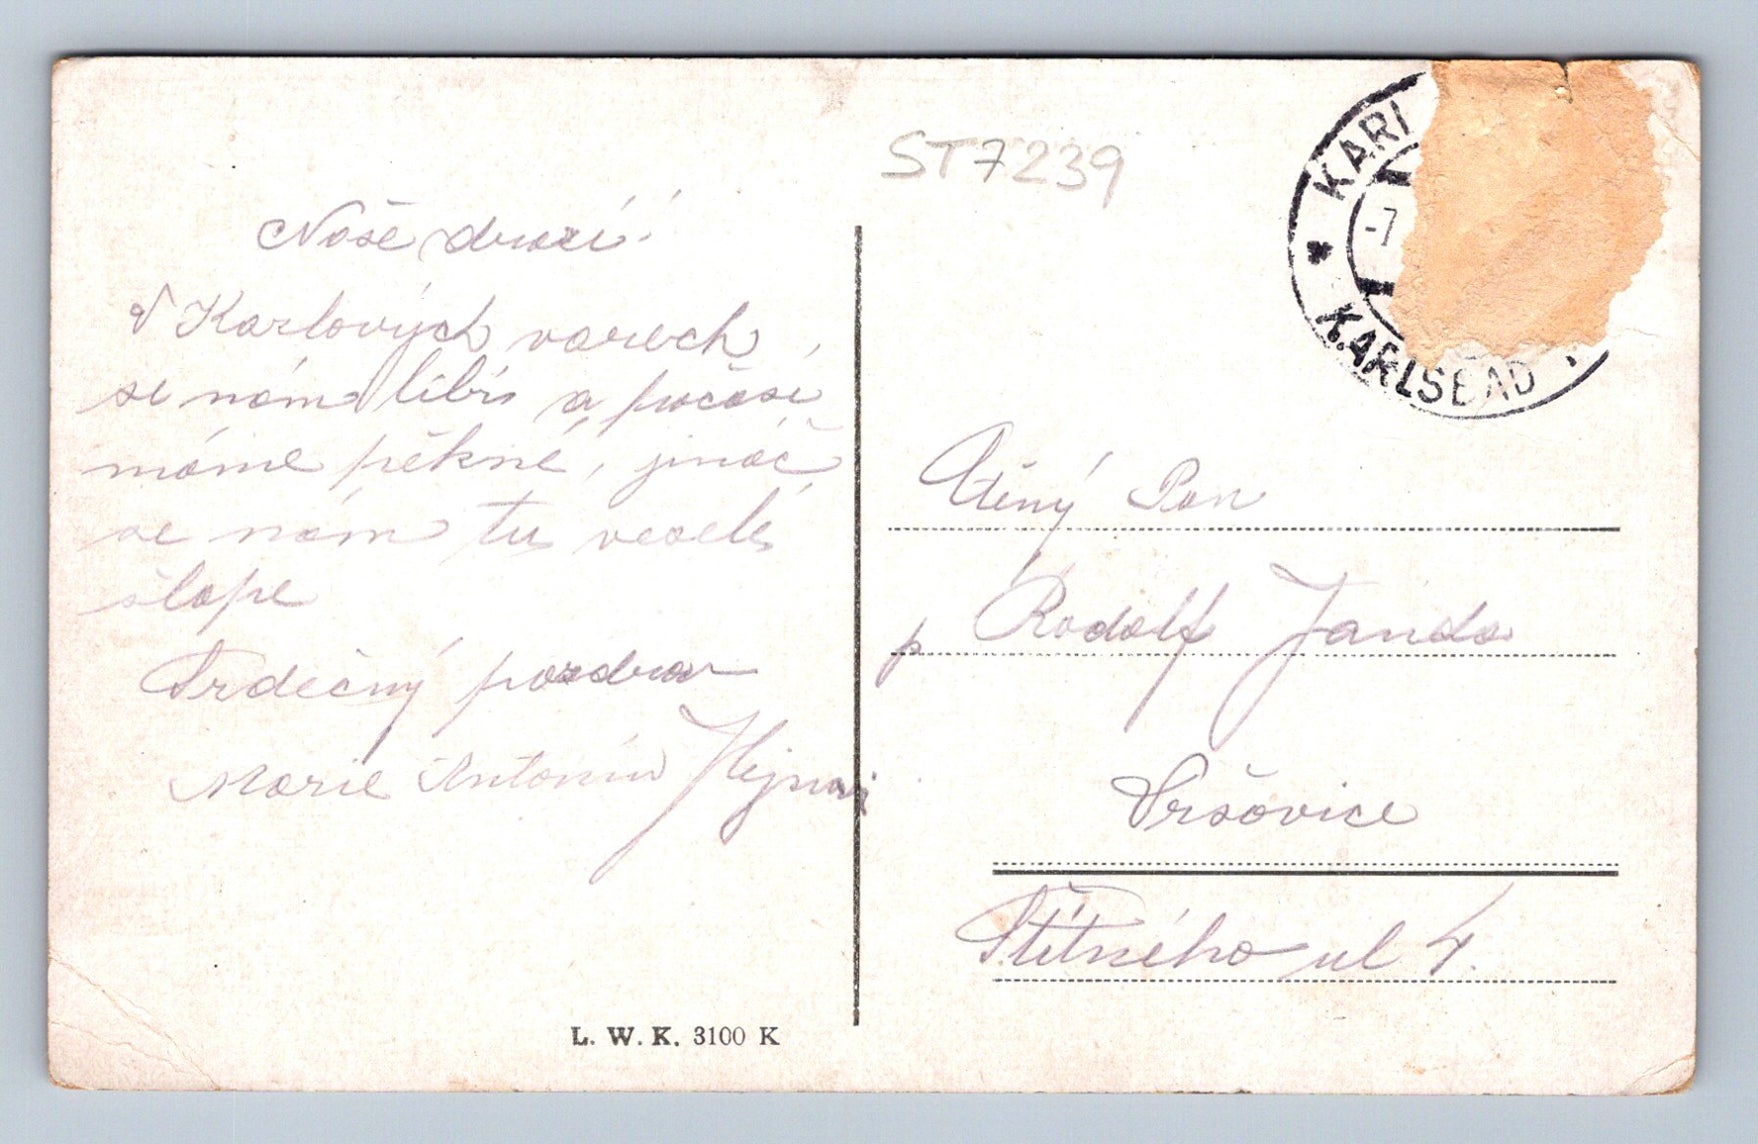 ST7239
Naše drazí!
V Karlových varech
se nám libí a počasí
máme pěkné, jináč
se nám tu veselé
šlape
Srdečný pozdrav
Marie Antonín Hejnovi
L. W. K. 3100 K
KARL
-7
KARLSBAD 1
Ctěný Pan
p Rudolf Janda
Vršovice
Štítného ul 4.